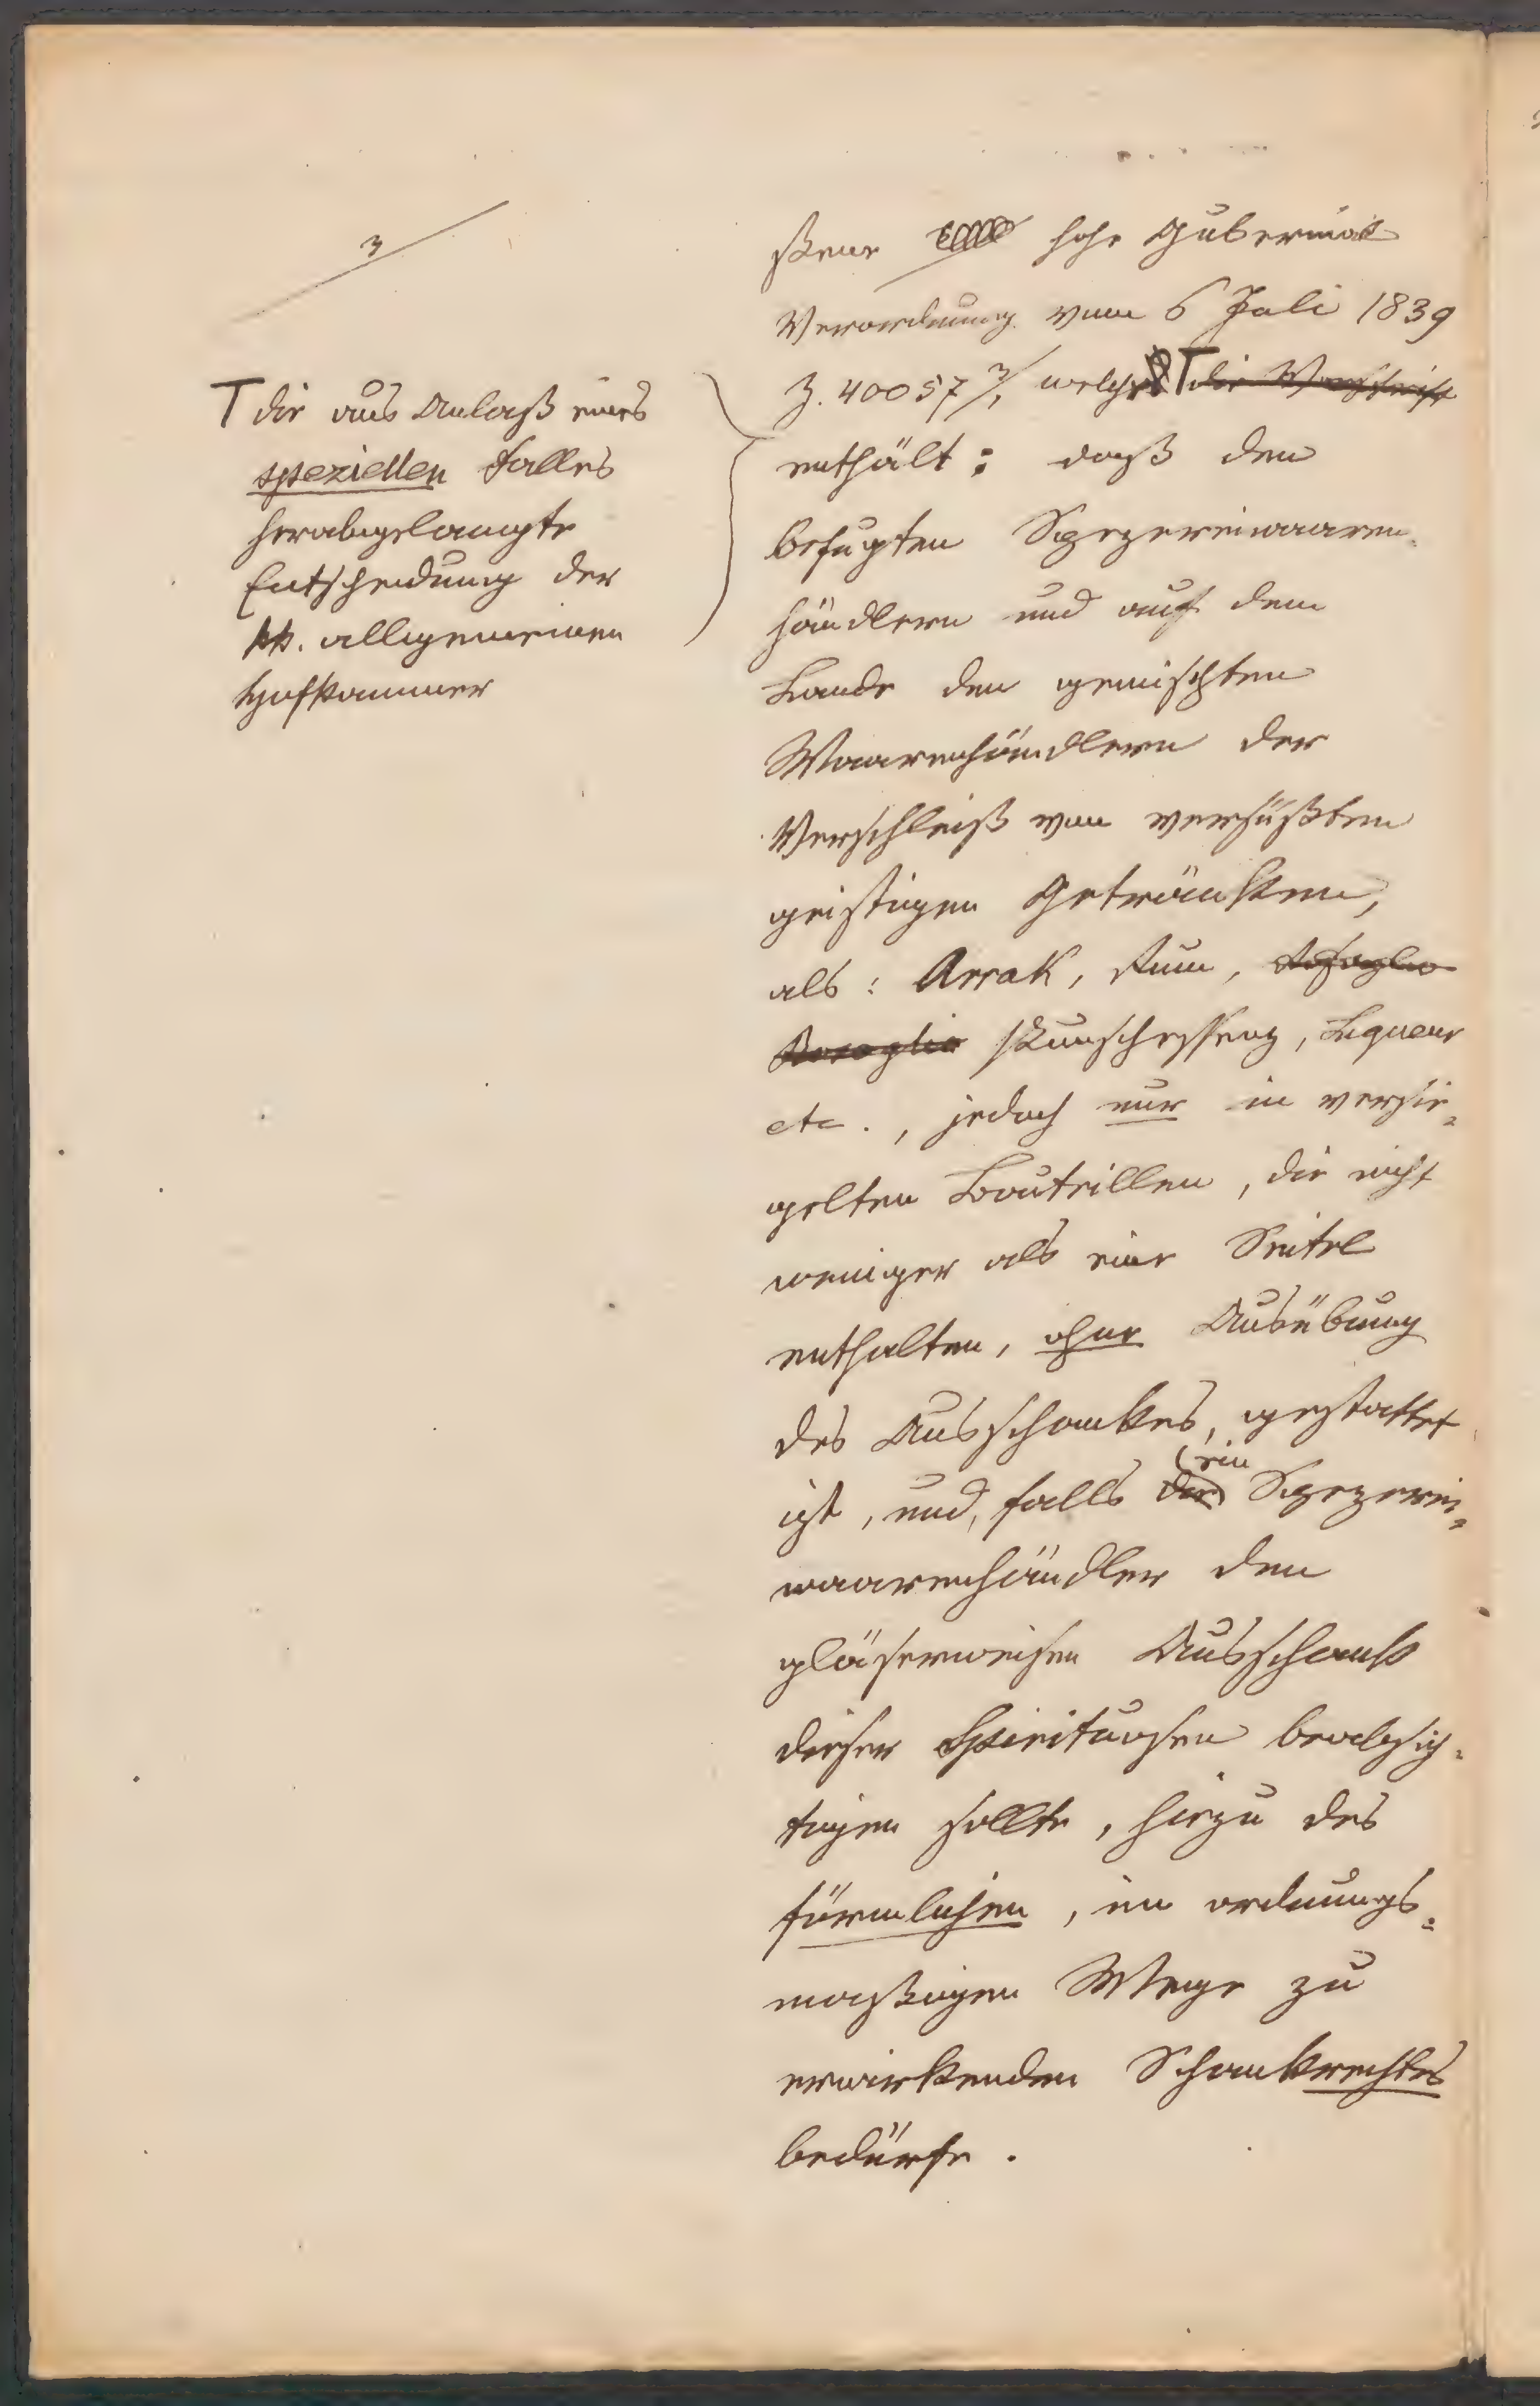 3/
T die aus Anlaß eines
speziellen Falles
herabgelangte
Entscheidung der
kk. allgemeinen
Hofkammer
ßene hohe Gubernial
Verordnung vom 6 Juli 1839
Z. 40057 3/, welche T die Vorschrift
enthält: daß den
befugten Spezereiwaaren-
händlern und auf dem
Lande den gemischten
Waarenhändlern der
Verschleiß von versüßten
geistigen Getränken,
als: Arrak, Rum, Rosoglio
Rosoglio Punschessenz, Liqueur
etc., jedoch nur in versie=
gelten Bouteillen, die nicht
weniger als eine Seitel
enthalten, ohne Ausübung
des Ausschankes, gestattet
ist, und, falls der ein Spezerei=
waarenhändler den
gläserweisen Ausschank
dieser Spirituosen beabsich=
tigen sollte, hiezu des
förmlichen, im ordnungs=
maßigen Wege zu
erwirkenden Schankrechtes
bedürfe.